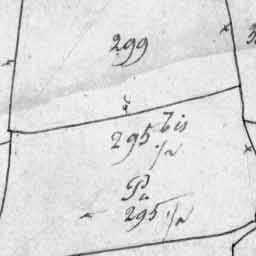 299
295 bis
1/2
Pa
295 1/2